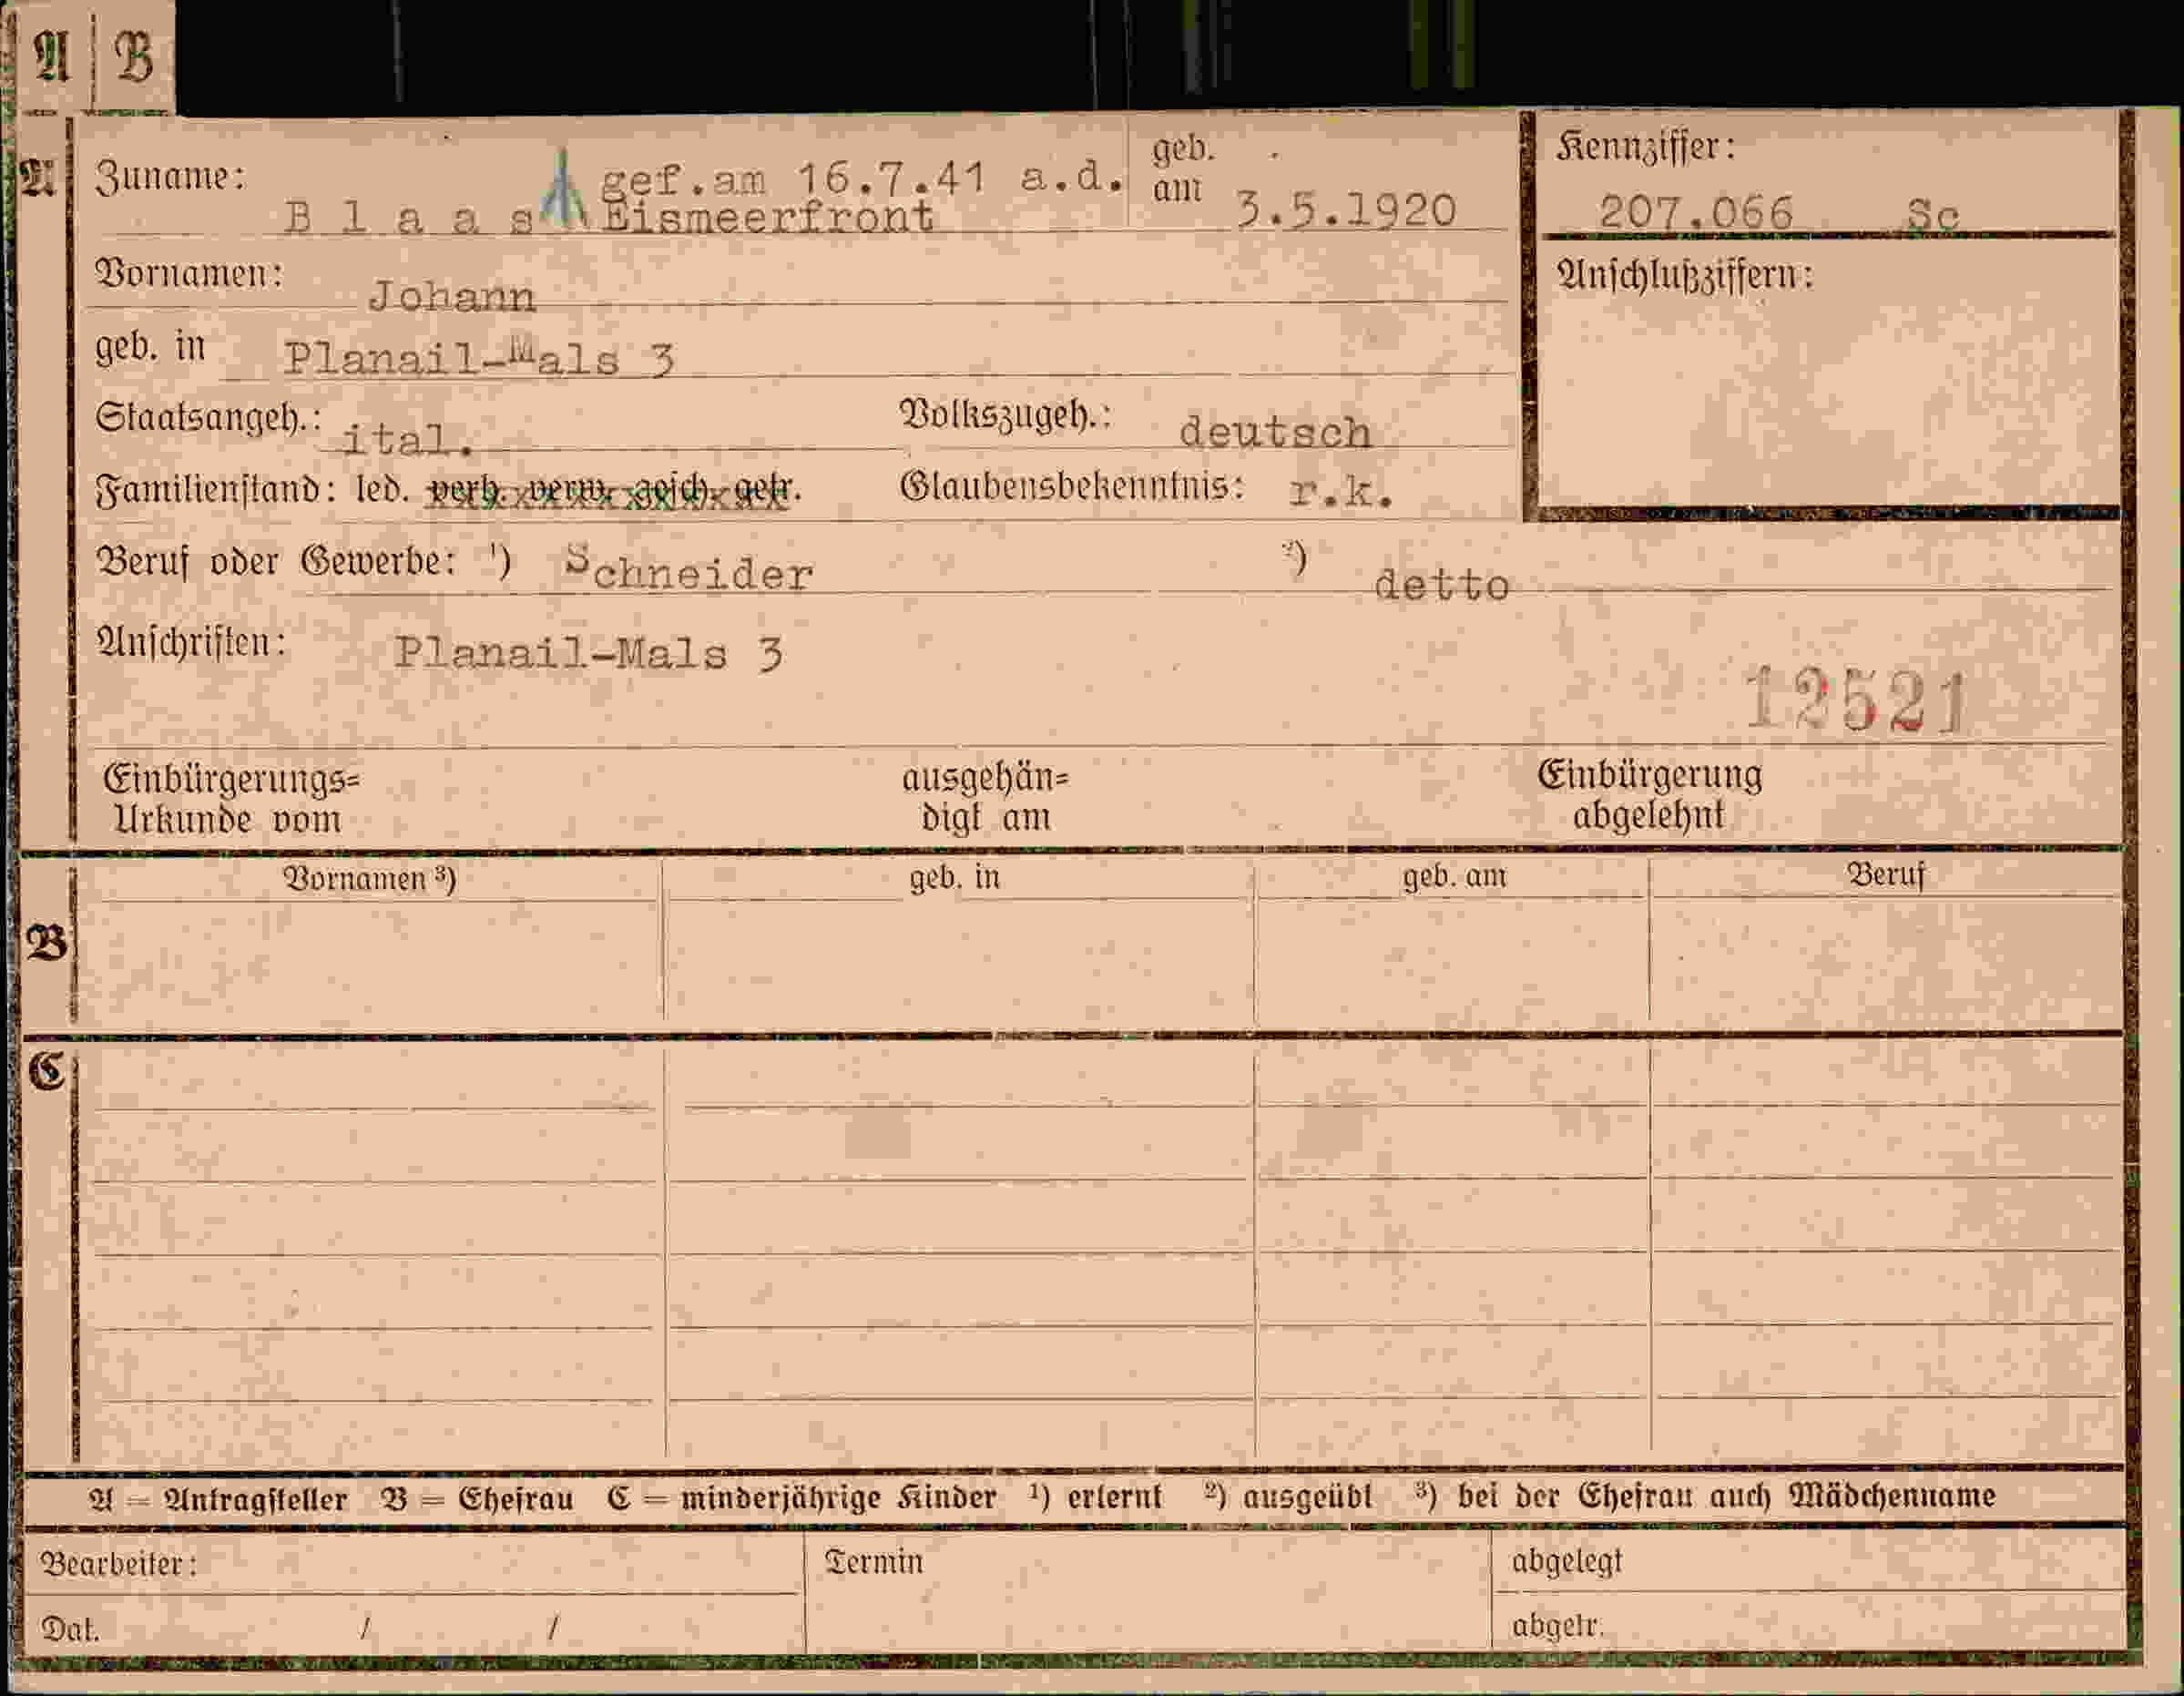 A B
A
Zuname: gef.am 16.7.41 a.d. geb. am 3.5.1920 Kennziffer:
B l a a s Eismeerfront 207.066 Sc
Vornamen: Johann Anschlußziffern:
geb. in Planail-Mals 3
Staatsangeh.: ital. Volkszugeh.: deutsch
Familienstand: led. verh. verw. gesch. getr. Glaubensbekenntnis: r.k.
Beruf oder Gewerbe: ¹) Schneider ²) detto
Anschriften: Planail-Mals 3
12521
Einbürgerungs= ausgehän= Einbürgerung
Urkunde vom digt am abgelehnt
Vornamen ³) geb. in geb. am Beruf
B
C
A = Antragsteller B = Ehefrau C = minderjährige Kinder ¹) erlernt ²) ausgeübt ³) bei der Ehefrau auch Mädchenname
Bearbeiter: Termin abgelegt
Dat. / / abgetr.